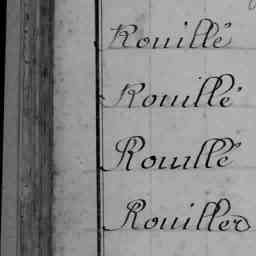 Rouillé
Rouillé
Rouillé
Rouiller